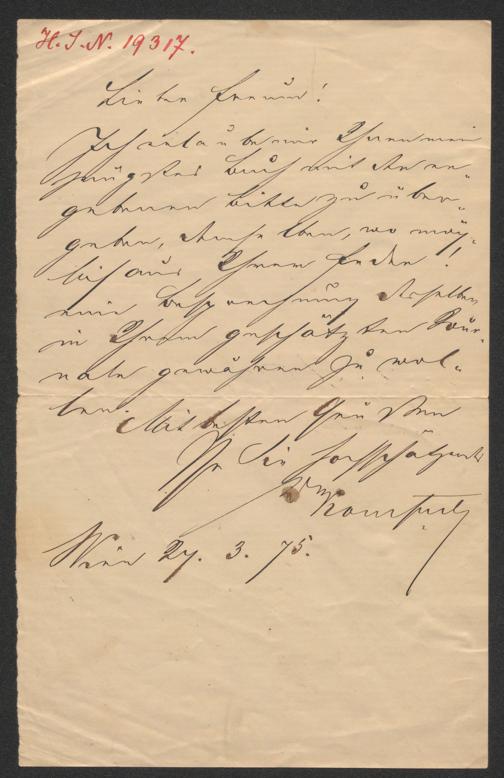 H. I. N. 19317.
Lieber Freund!
Ich erlaube mir Ihnen mein
jüngstes Buch mit der er-
gebenen Bitte zu über-
geben, demselben, wo mög-
lich aus Ihrer Feder!
eine Besprechung desselben
in Ihrem geschätzten Jour-
nale gewähren zu wol-
len. Mit besten Grüßen
Ihr Sie hochschätzender
Wien 27. 3. 75.